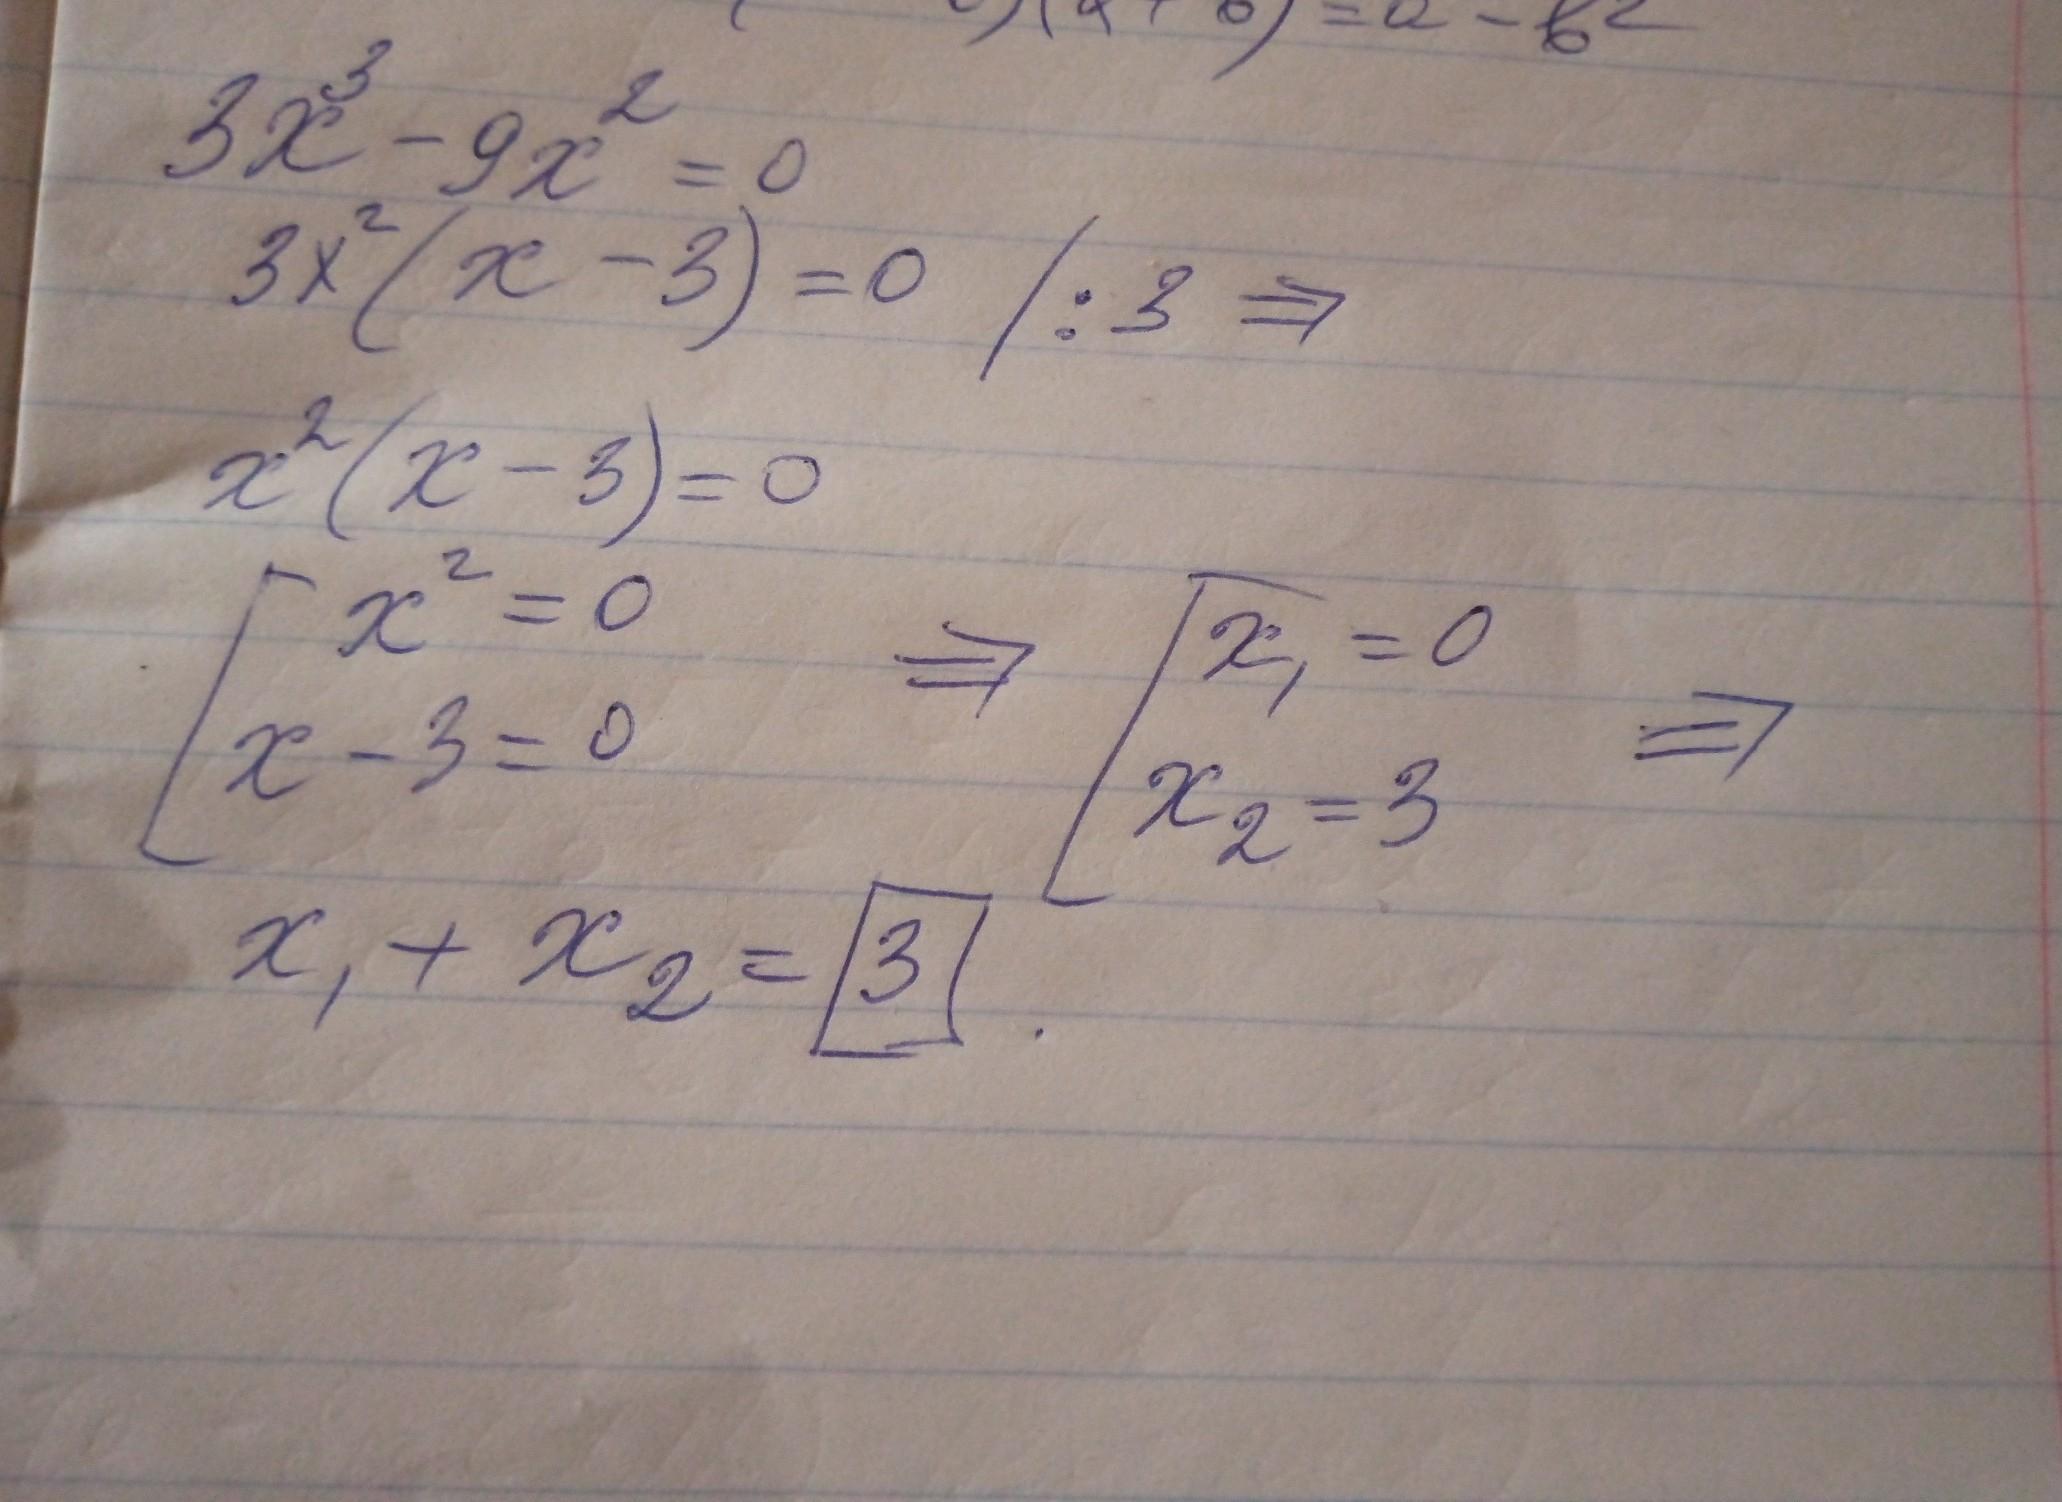 )(a+b)=a-b²
3x³-9x²=0
3x²(x-3)=0 /:3⇒
x²(x-3)=0
[x²=0 ⇒ [x₁=0 ⇒
x-3=0 x₂=3
x₁+x₂=3.